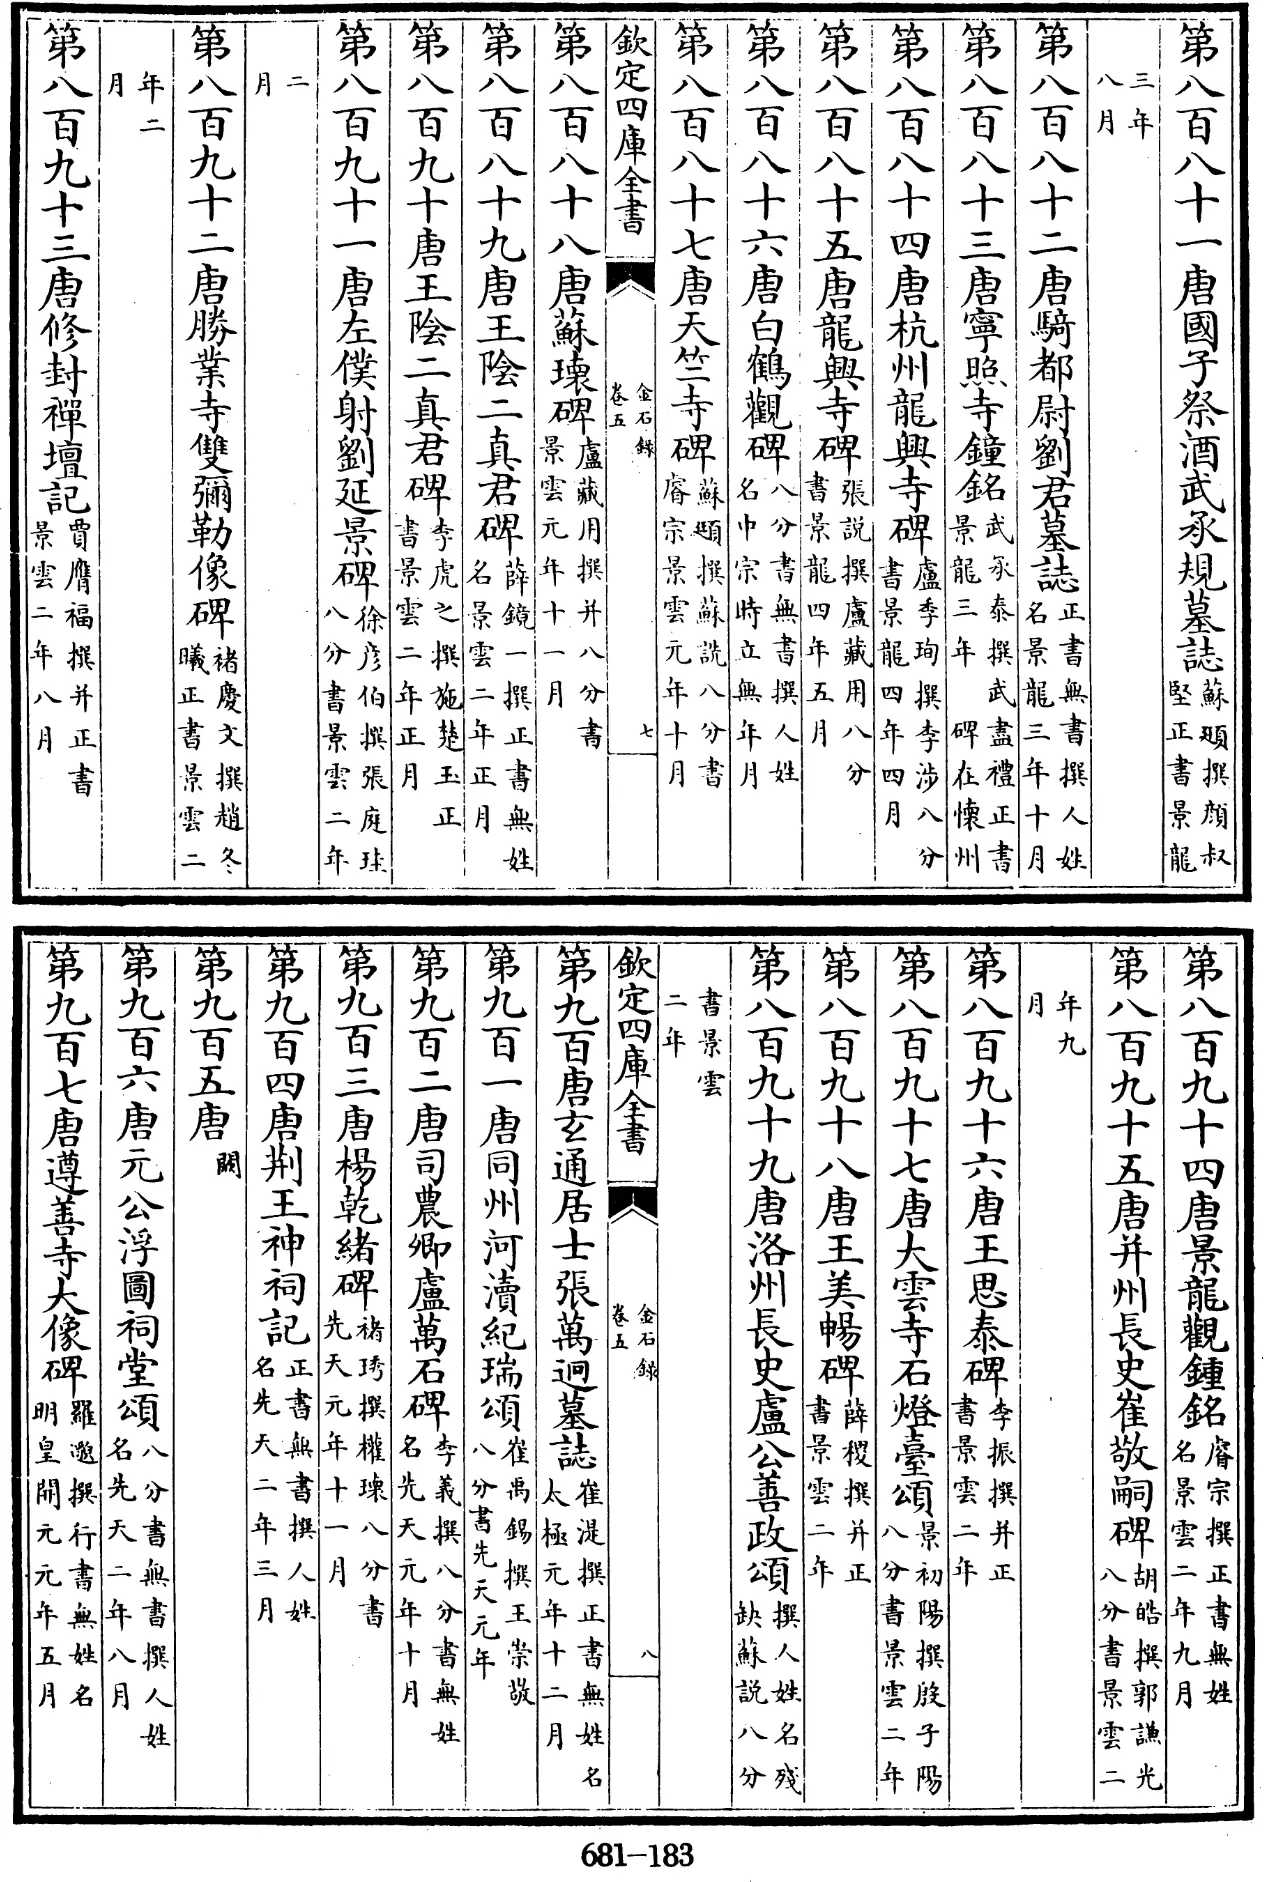 第八百八十一唐國子祭酒武承規墓誌蘇頲撰顏叔堅正書景龍
三年八月
第八百八十二唐騎都尉劉君墓誌正書無書撰人姓名景龍三年十月
第八百八十三唐寧照寺鐘銘武承泰撰武盡禮正書景龍三年碑在懷州
第八百八十四唐杭州龍興寺碑盧季珣撰李涉八分書景龍四年四月
第八百八十五唐龍興寺碑張說撰盧藏用八分書景龍四年五月
第八百八十六唐白鶴觀碑八分書無書撰人姓名中宗時立無年月
第八百八十七唐天竺寺碑蘇頲撰蘇詵八分書睿宗景雲元年十月
欽定四庫全書
金石錄
卷五
七
第八百八十八唐蘇瓌碑盧藏用撰并八分書景雲元年十一月
第八百八十九唐王陰二真君碑薛鏡一撰正書無姓名景雲二年正月
第八百九十唐王陰二真君碑李虎之撰施楚玉正書景雲二年正月
第八百九十一唐左僕射劉延景碑徐彥伯撰張庭珪八分書景雲二年
二月
第八百九十二唐勝業寺雙彌勒像碑褚慶文撰趙冬曦正書景雲二
年二月
第八百九十三唐修封禪壇記賈膺福撰并正書景雲二年八月
第八百九十四唐景龍觀鍾銘睿宗撰正書無姓名景雲二年九月
第八百九十五唐并州長史崔敬嗣碑胡皓撰郭謙光八分書景雲二
年九月
第八百九十六唐王思泰碑李振撰并正書景雲二年
第八百九十七唐大雲寺石燈臺頌景初陽撰殷子陽八分書景雲二年
第八百九十八唐王美暢碑薛稷撰并正書景雲二年
第八百九十九唐洛州長史盧公善政頌撰人姓名殘缺蘇說八分
書景雲二年
欽定四庫全書
金石錄
卷五
八
第九百唐玄通居士張萬迥墓誌崔湜撰正書無姓名太極元年十二月
第九百一唐同州河瀆紀瑞頌崔禹錫撰王崇敬八分書先天元年
第九百二唐司農卿盧萬石碑李義撰八分書無姓名先天元年十月
第九百三唐楊乾緒碑褚琇撰權瓌八分書先天元年十一月
第九百四唐荆王神祠記正書無書撰人姓名先天二年三月
第九百五唐闕
第九百六唐元公浮圖祠堂頌八分書無書撰人姓名先天二年八月
第九百七唐遵善寺大像碑羅邈撰行書無姓名明皇開元元年五月
681-183